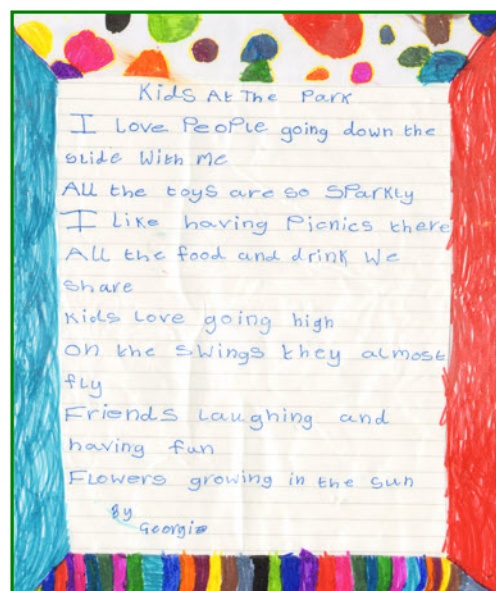 Kids At The Park
I Love People going down the
slide With me
All the toys are so sparkly
I Like having Picnics there
All the food and drink We
share
Kids Love going high
on the swings they almost
fly
Friends Laughing and
having fun
Flowers growing in the sun
By
Georgia